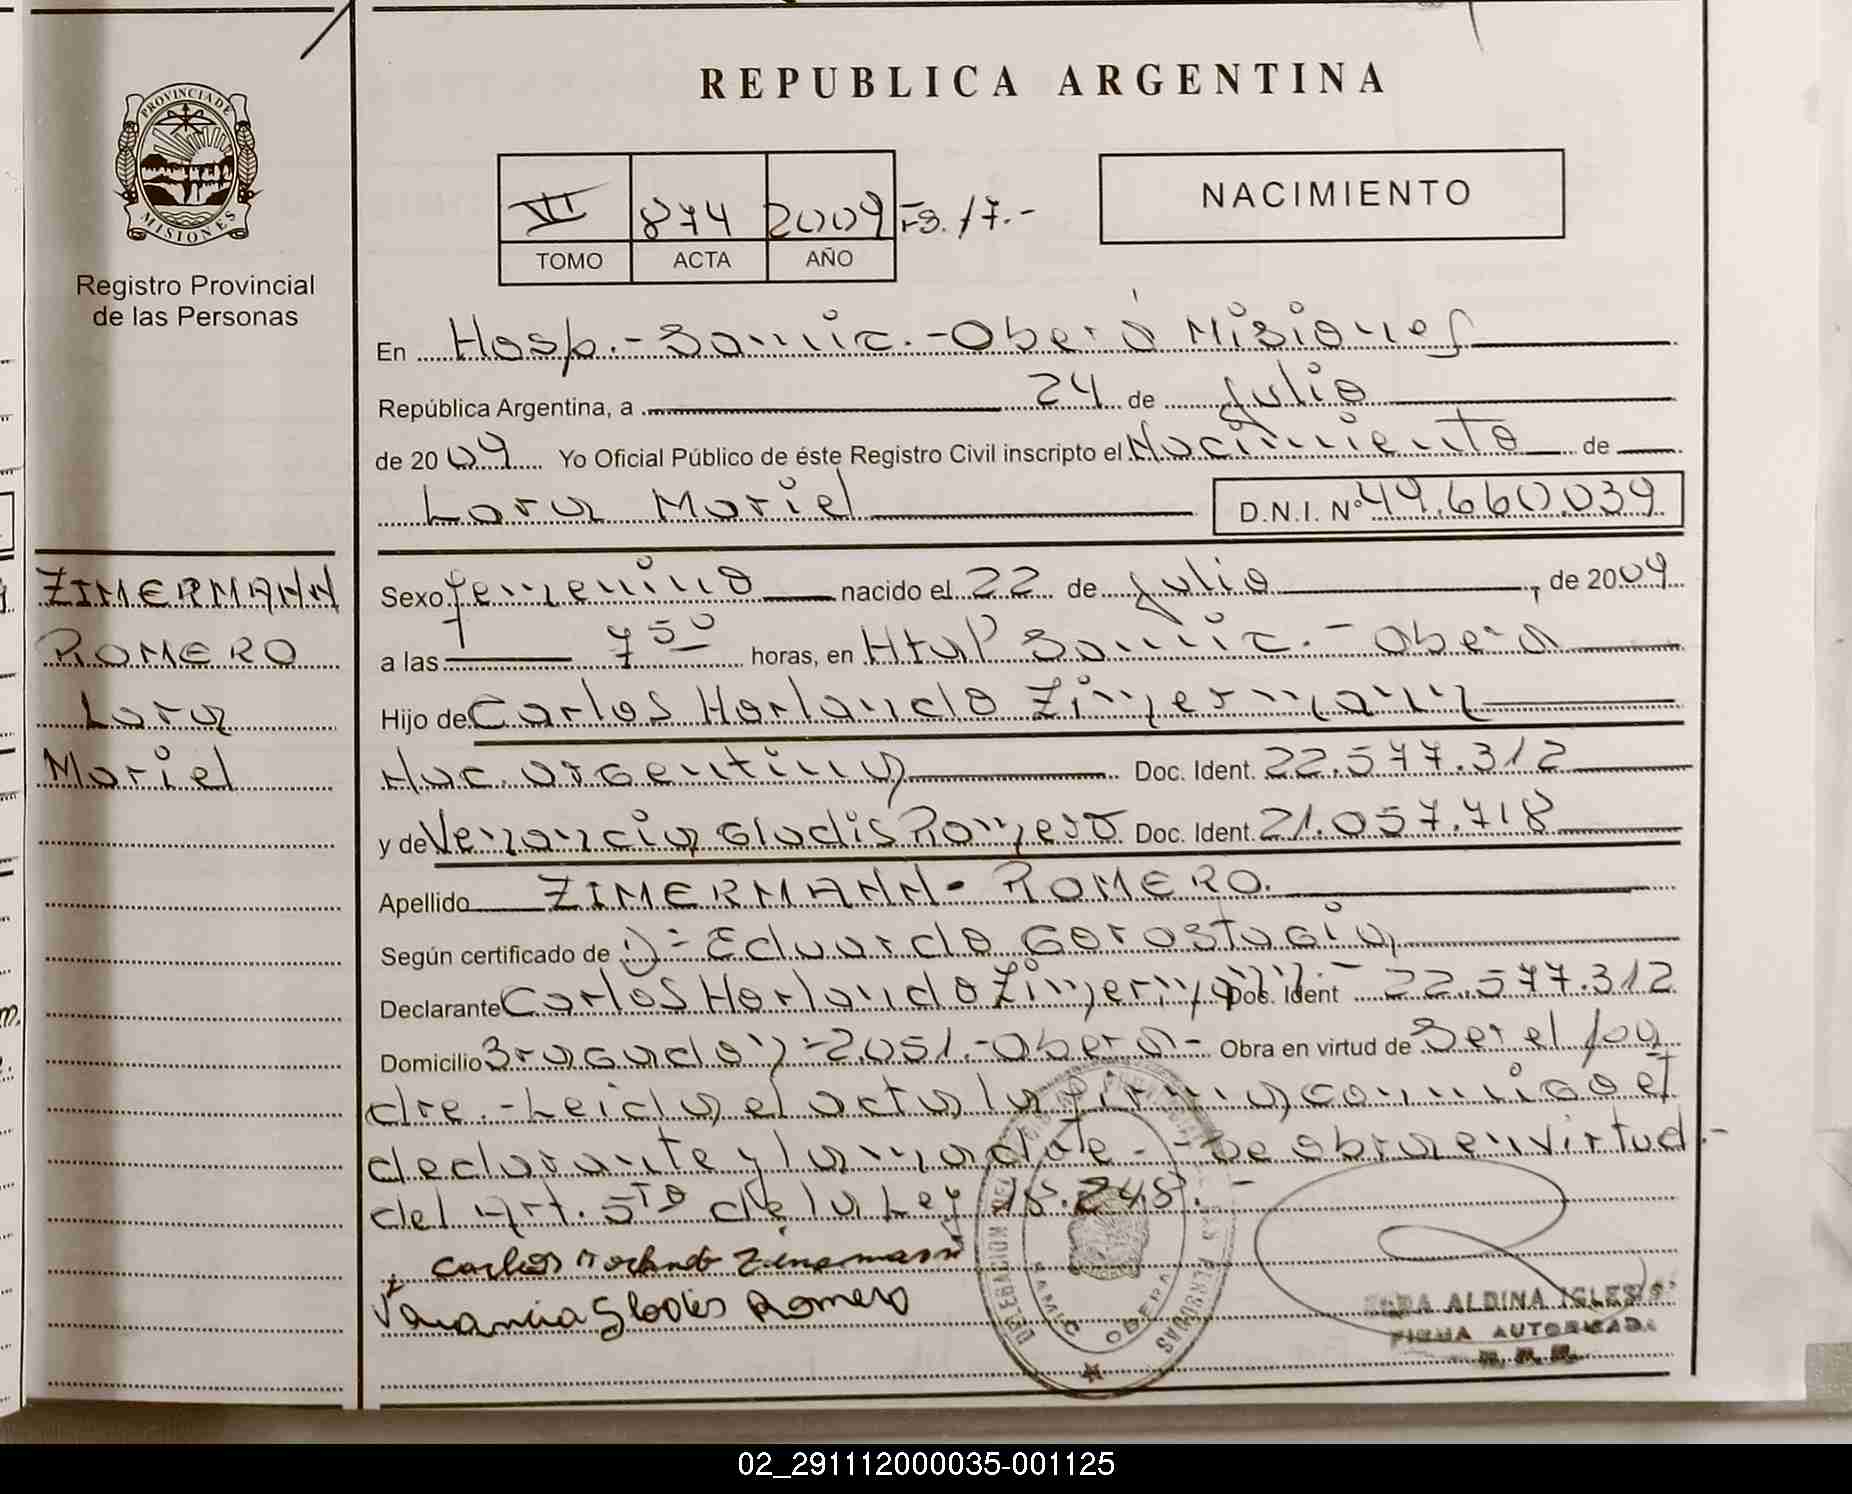 PROVINCIA DE
MISIONES
Registro Provincial
de las Personas
REPUBLICA ARGENTINA
VI 874 2009 Fs. 17.-
TOMO ACTA AÑO
NACIMIENTO
En Hosp.-Samic.-Oberá Misiones
República Argentina, a 24 de Julio
de 2009 Yo Oficial Público de éste Registro Civil inscripto el Nacimiento de
Lara Mariel D.N.I. Nº 49.660.039
ZIMERMANN
ROMERO
Lara
Mariel
Sexo femenino nacido el 22 de Julio , de 2009
a las 7 50 horas, en Htal Samic.- Obera
Hijo de Carlos Horlando Zimermann
Nac. argentina Doc. Ident. 22.577.312
y de Venancia Gladis Romero Doc. Ident. 21.057.718
Apellido ZIMERMANN- ROMERO.
Según certificado de Eduardo Gorostagia
Declarante Carlos Horlando Zimermann.- Doc. Ident 22.577.312
Domicilio Bragado -2051.-Obera- Obra en virtud de Ser el pa
dre.-Leida el acta la firma conmigo el
declarante y la madre.-Se obra en virtud.-
del Art. 5to de la Ley 18.248.-
Carlos Horlando Zimermann
Venancia Gladis Romero
DELEGACION
RAMO OBERA
ALDINA IGLESIAS
FIRMA AUTORIZADA
02_291112000035-001125